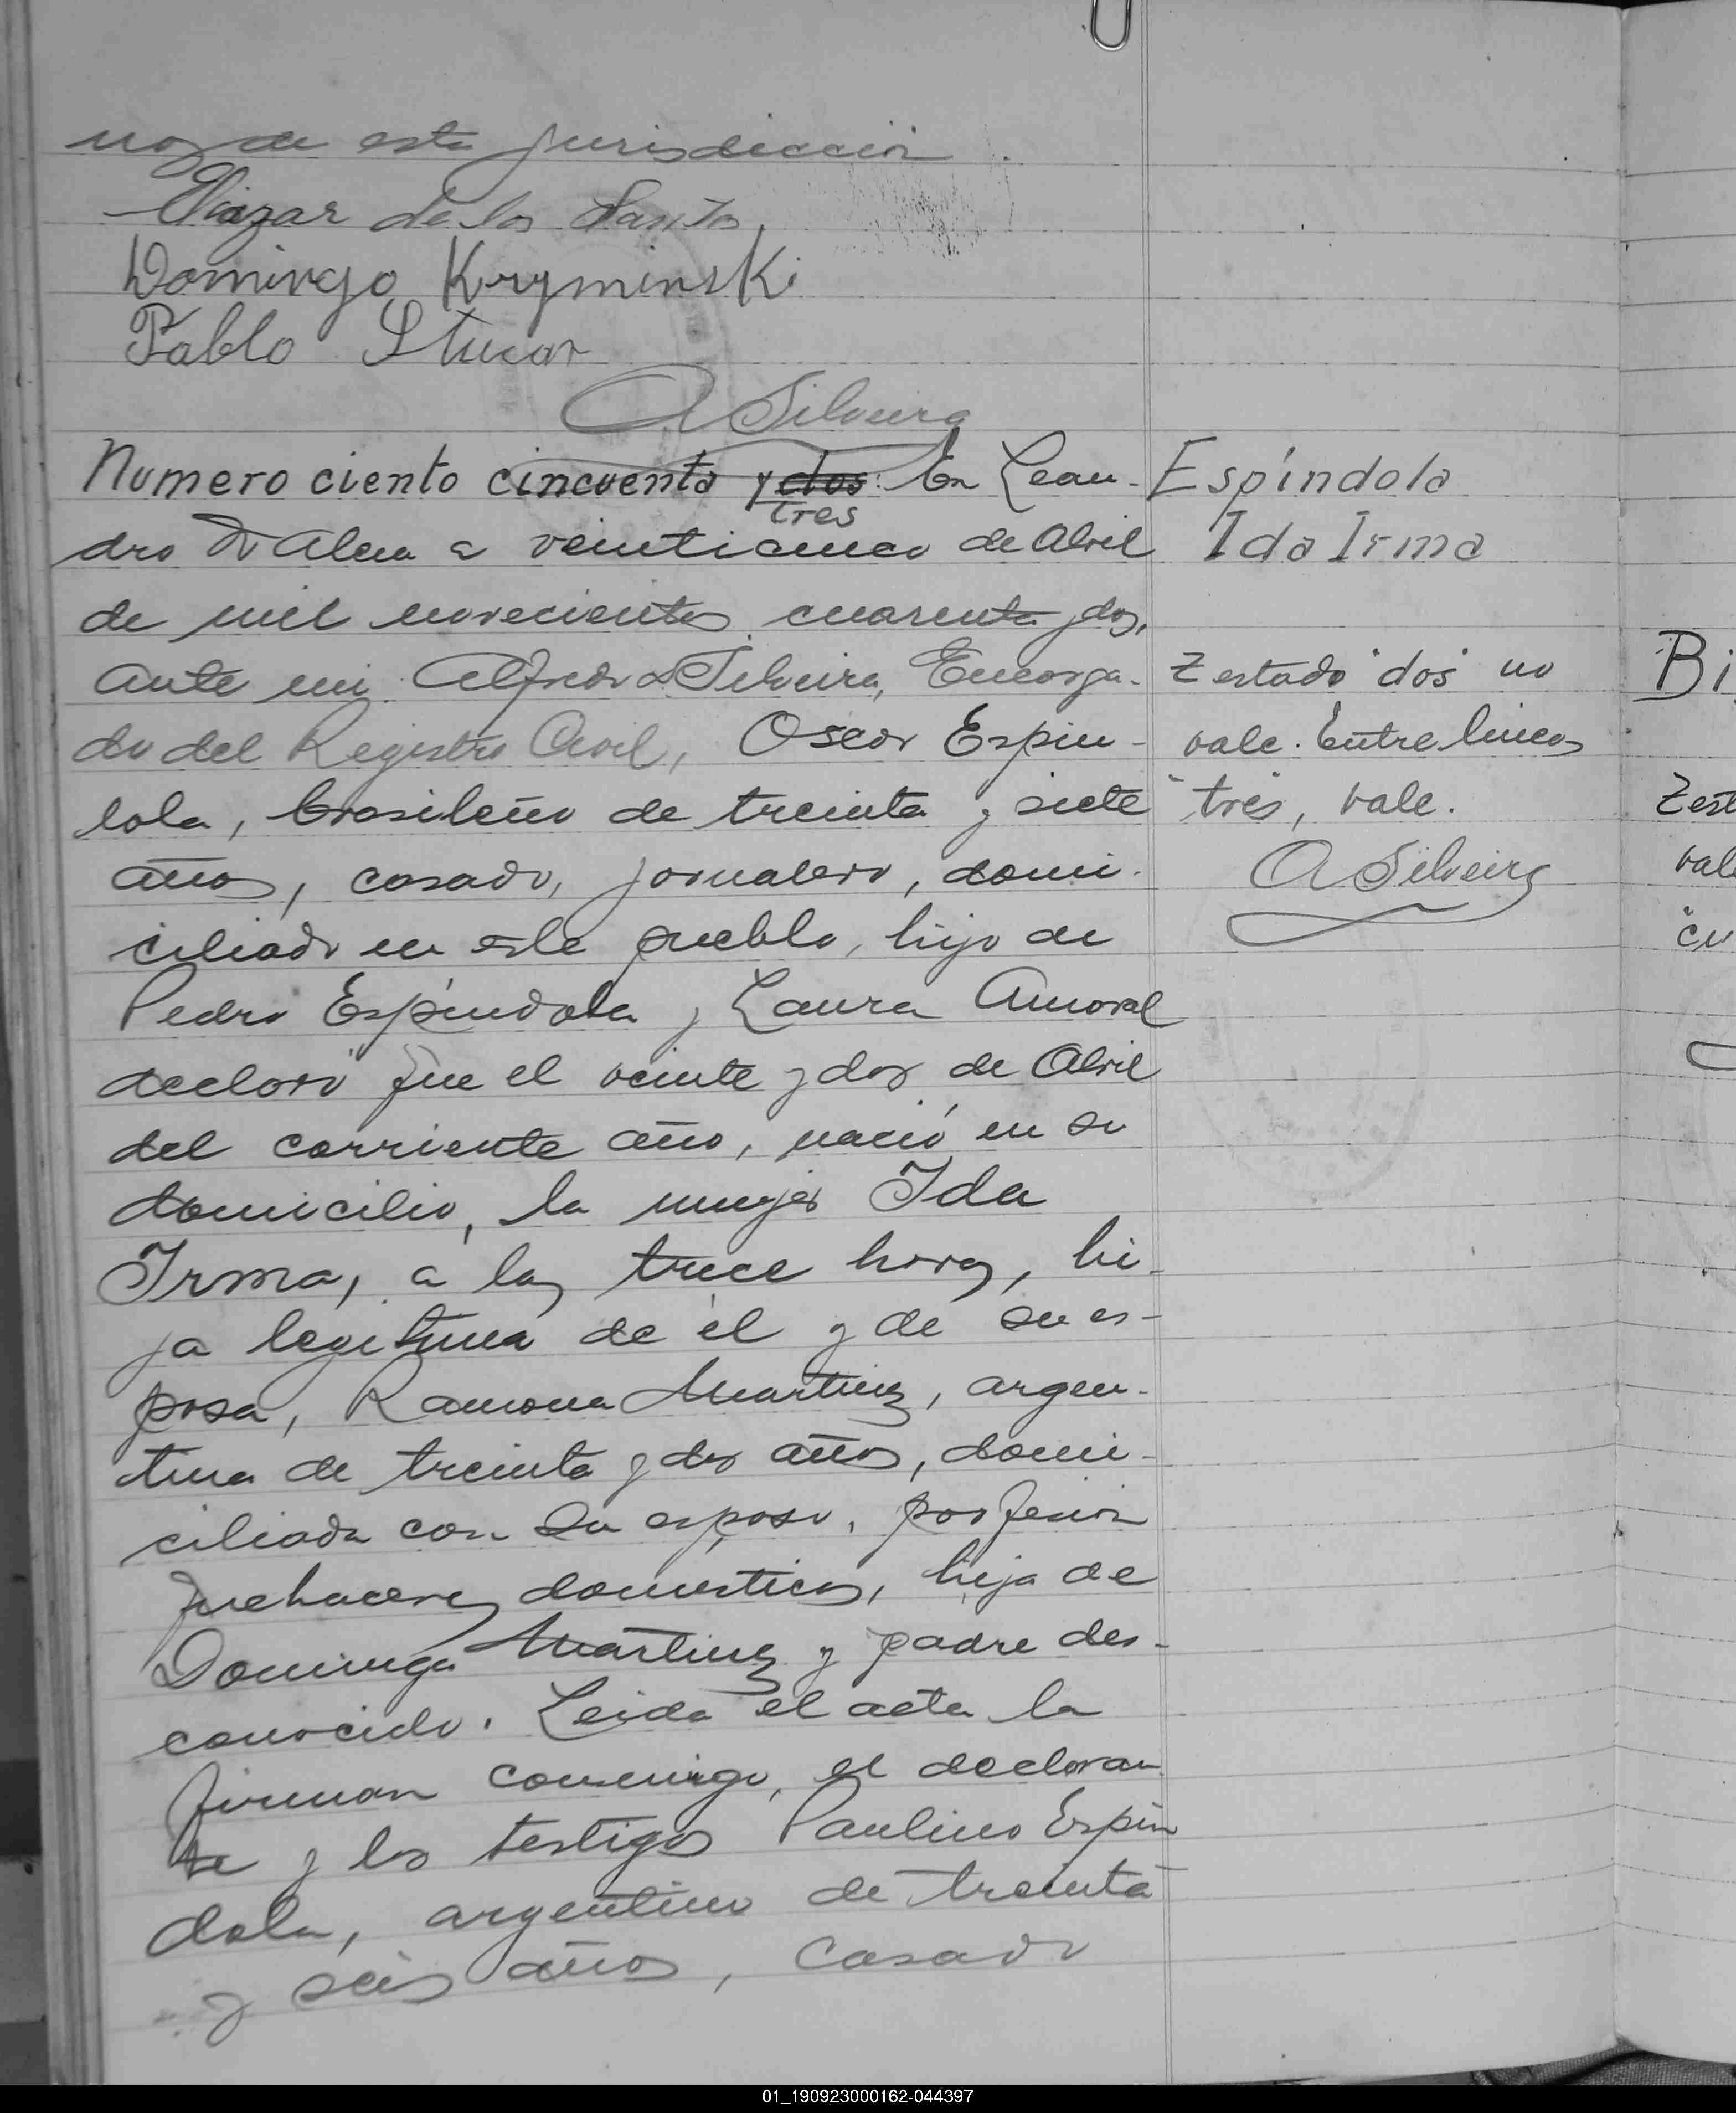 nos de esta jurisdiccion.
Eliazar de los Santos
Domingo Kryminski
Pablo
A Silveira
Numero ciento cincuenta y dos En Lean-
tres
dro N Alem a veinticinco de Abril
de mil novecientos cuarenta y dos,
ante mi Alfredo Silveira, Encarga-
do del Registro Civil, Oscar Espin-
lola, brasileño de treinta y siete
años, casado, jornalero, domi-
ciliado en este pueblo, hijo de
Pedro Espíndola y Laura Amaral
declaró que el veinte y dos de Abril
del corriente año, nació en su
domicilio, la mujer Ida
Irma, a las trece horas, hi-
ja legitima de él y de su es-
posa, Ramona Martinez, argen-
tina de treinta y dos años, domi-
ciliada con su esposo, profesion
quehaceres domesticos, hija de
Dominga Martinez y padre des-
conocido. Leida el acta la
firman conmigo, el declaran
te y los testigos Paulino Espín
dola, argentino de treinta
y seis años, casado
Espíndola
Ida Irma
Testado "dos" no
vale. Entre lineas
"tres", vale.
A Silveira
Bi
Test
vale
"cu
01_190923000162-044397